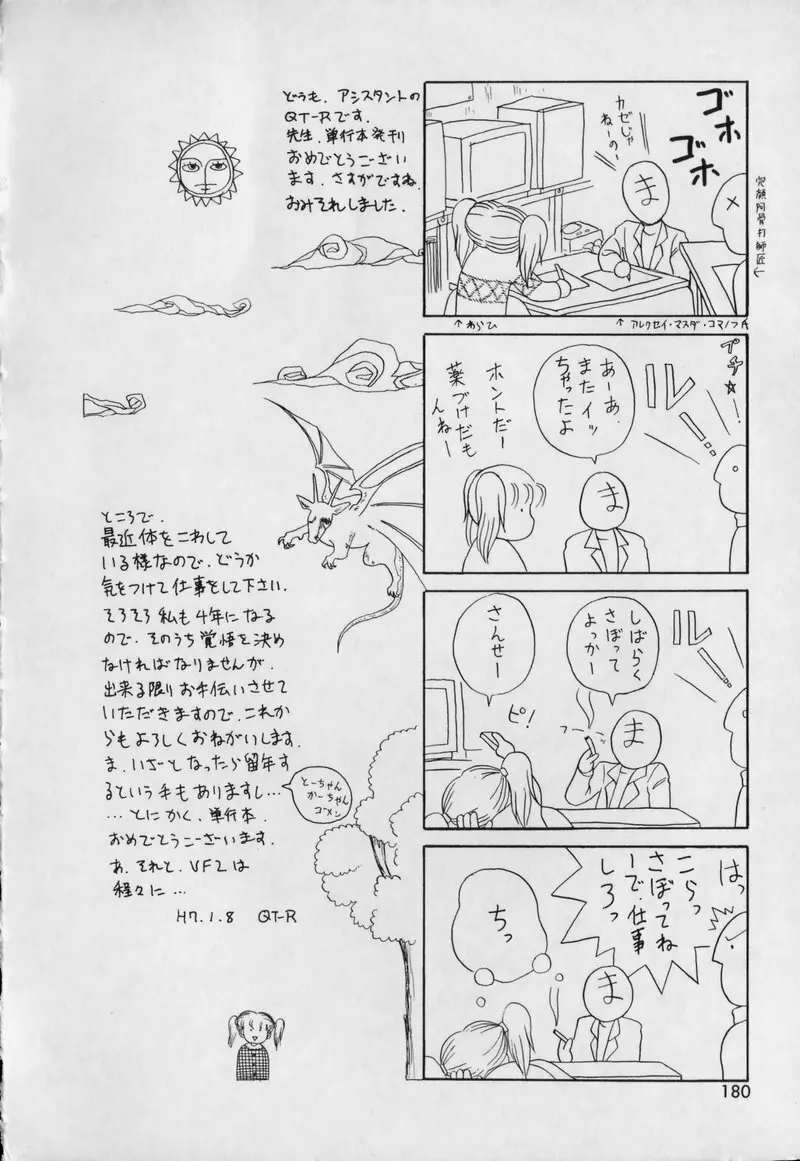 ゴホ
ゴホ
カゼじゃ
ねーの?
ま
↑アレクセイ・マスダ・コマノフ氏
↑わらひ
プチ☆
ル!!
あーあ.
またイッ
ちゃったよ
ホントだー
薬づけだも
んねー
ま
ル
しばらく
さぼって
よっかー
フー
さんせー
ピ!
ま
はっ
こらっ
さぼってね
ーで.仕事
しろっ
ちっ
ま
どうも.アシスタントの
QT-Rです.
先生.単行本発刊
おめでとうござい
ます.さすがですね.
おみそれしました.
ところで.
最近体をこわして
いる様なので.どうか
気をつけて仕事をして下さい.
そろそろ私も4年になる
ので.そのうち覚悟を決め
なければなりませんが.
出来る限りお手伝いさせて
いただきますので.これか
らもよろしくおねがいします.
ま.いざとなったら留年す
るという手もありますし…
とーちゃん
かーちゃん
ゴメン
…とにかく.単行本.
おめでとうございます.
あ.それと.VF2は
程々に…
H7.1.8 QT-R
180